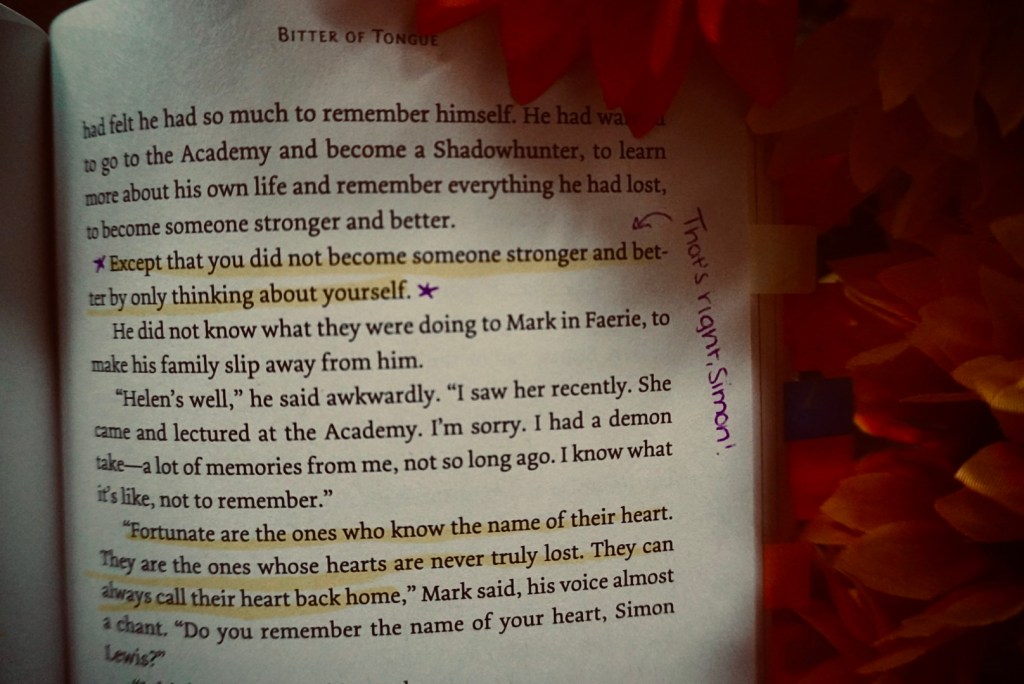 BITTER OF TONGUE
had felt he had so much to remember himself. He had
to go to the Academy and become a Shadowhunter, to learn
more about his own life and remember everything he had lost,
to become someone stronger and better.
Except that you did not become someone stronger and bet-
ter by only thinking about yourself.
He did not know what they were doing to Mark in Faerie, to
make his family slip away from him.
“Helen’s well,” he said awkwardly. “I saw her recently. She
came and lectured at the Academy. I’m sorry. I had a demon
take—a lot of memories from me, not so long ago. I know what
it’s like, not to remember.”
“Fortunate are the ones who know the name of their heart.
They are the ones whose hearts are never truly lost. They can
always call their heart back home,” Mark said, his voice almost
a chant. “Do you remember the name of your heart, Simon
Lewis?”
That's right, Simon!